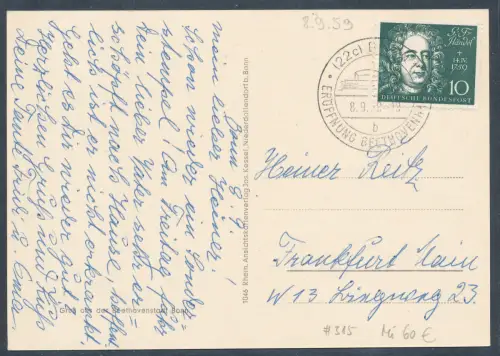 8.9.59
Bonn 8.9.
mein lieber Heiner!
Schon wieder ein Sonder-
stempel! Am Freitag fährt
Dein lieber Vater sehr er-
schöpft nach Hause, hoffentl.
ist er nicht erkrankt.
Geht es Dir wieder gut?
Herzlichen Gruß und Kuß
Deine Tante Trude u. Oma
Gruß aus der Beethovenstadt Bonn
1046 Rhein. Ansichtskartenverlag Jos. Kessel, Niederdollendorf b. Bonn
(22c) B
8.9.59
b
ERÖFFNUNG BEETHOVENH
G. F. Händel
† 14. IV. 1759
10
DEUTSCHE BUNDESPOST
Heiner Reitz
Frankfurt Main
W 13 Lingweg 23.
#315
Mi 60 €